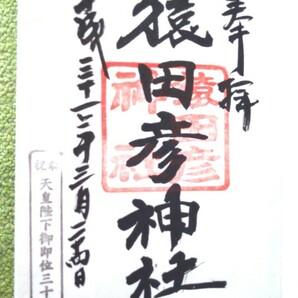 奉拝
猿田彦神社
猿田彦
神社
平成三十一年三月二十四日
奉祝
天皇陛下御即位三十